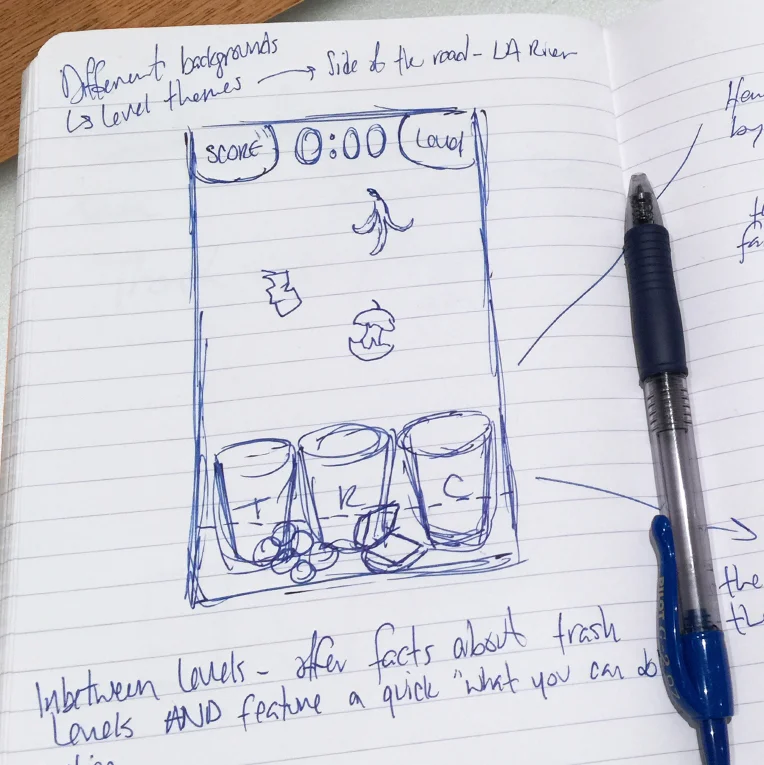 Different backgrounds
↳ level themes → Side of the road - LA River
SCORE 0:00 Level
T R C
Inbetween levels - offer facts about trash
levels AND feature a quick "what you can do
by
the